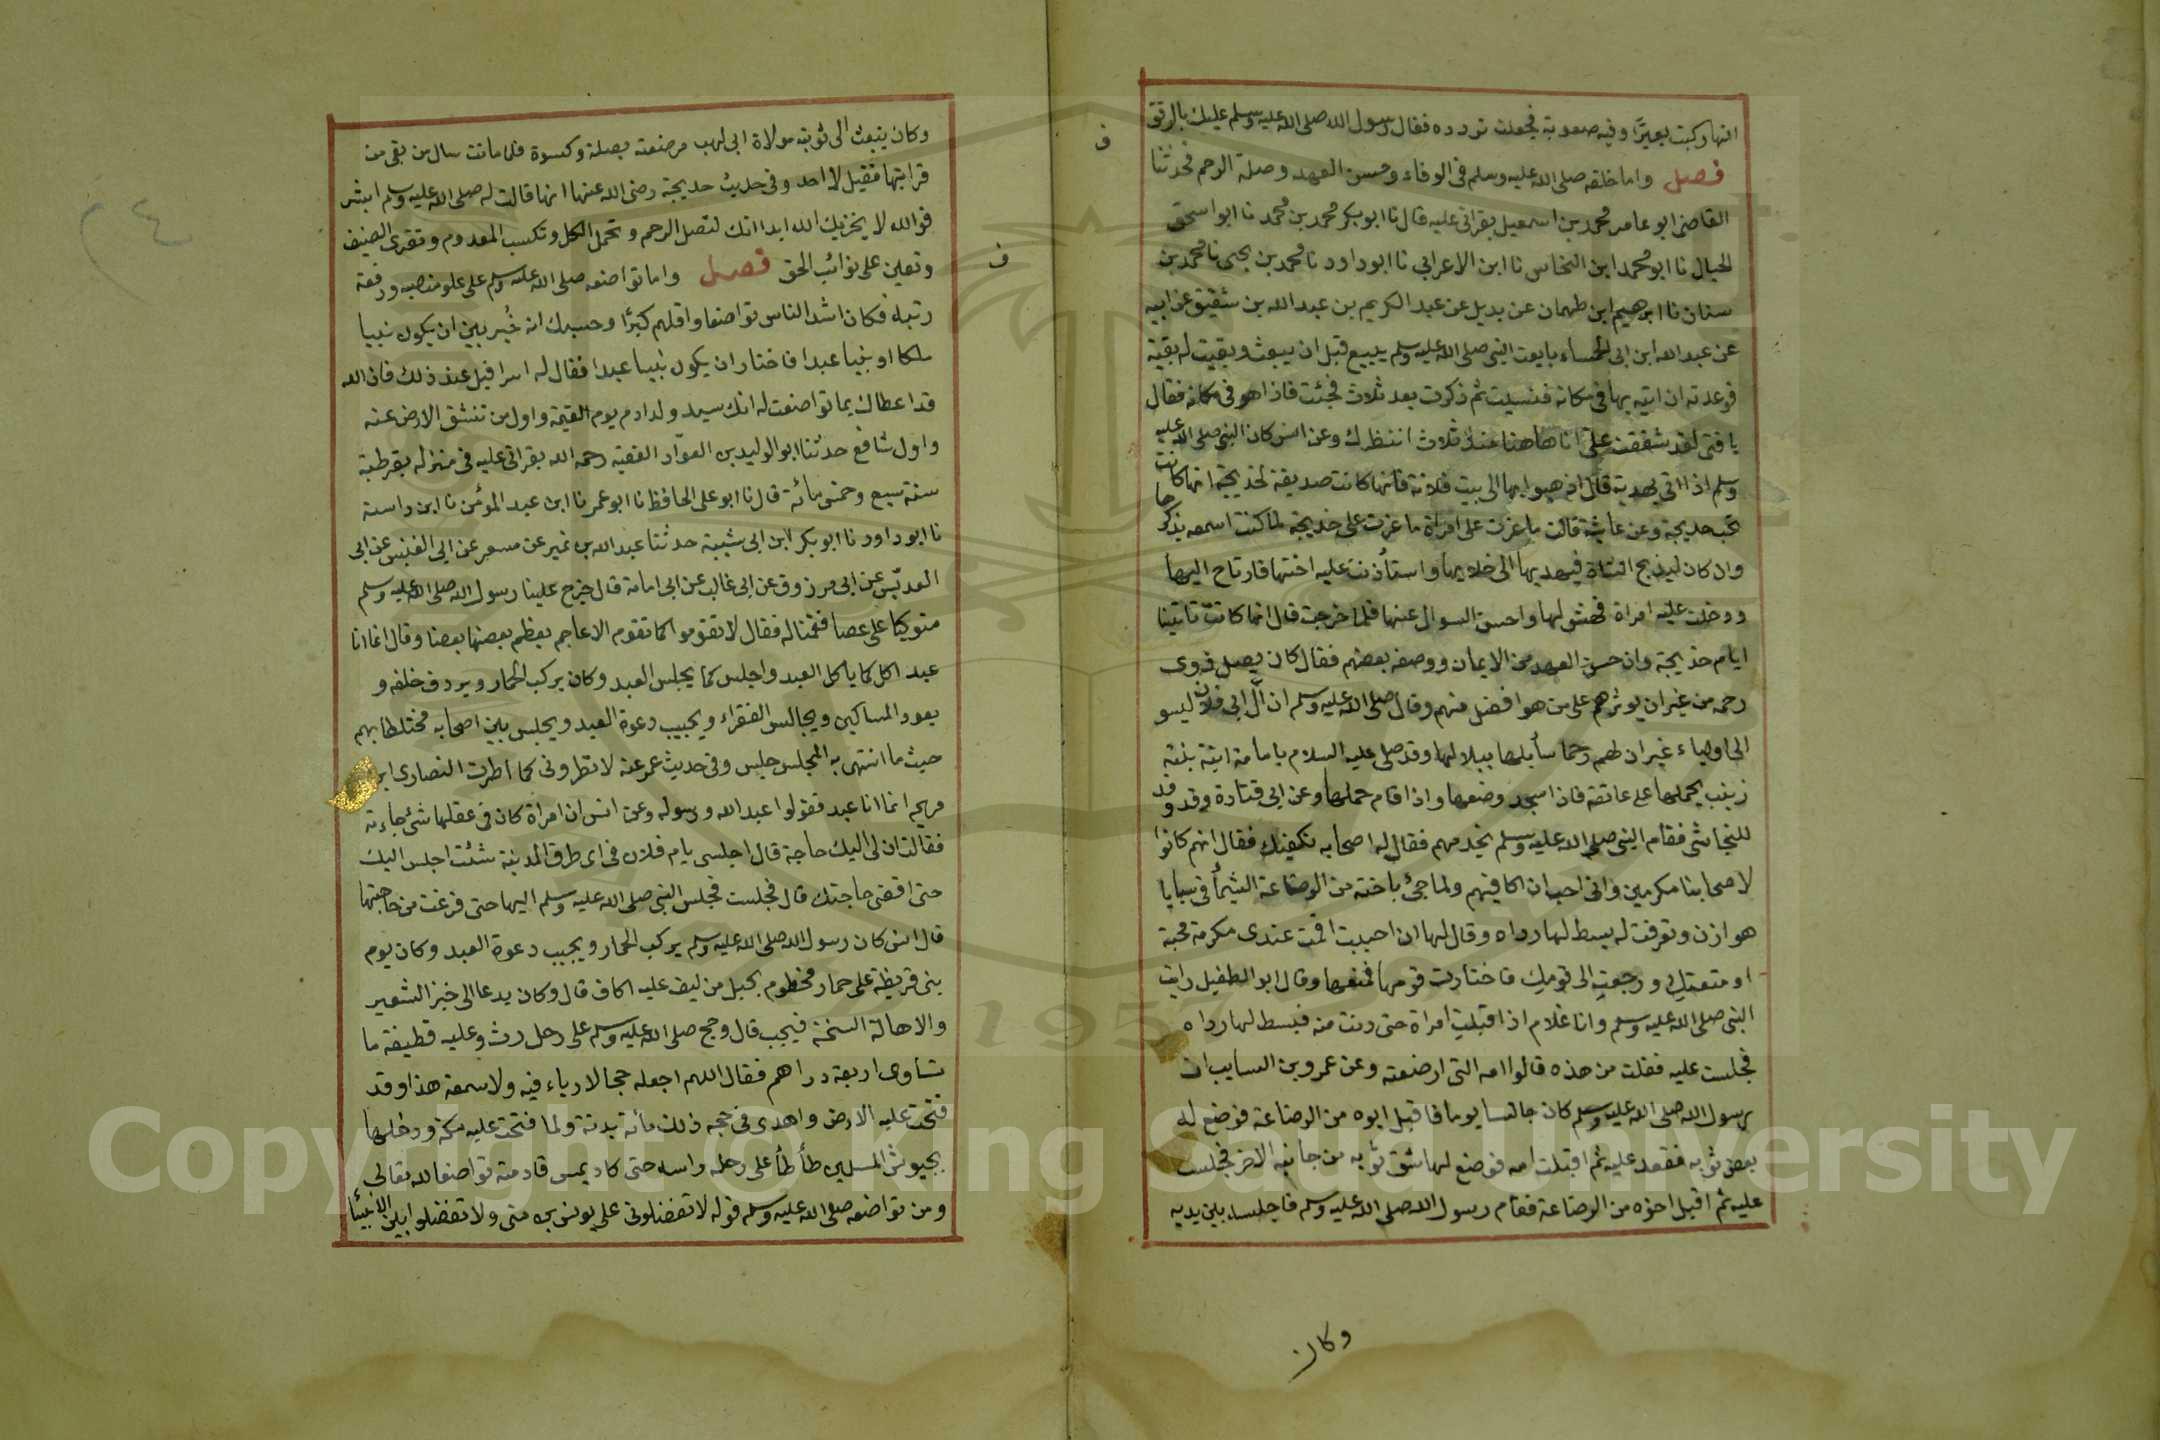 انها ركبت بعيرًا وفيه صعوبة فجعلت تردده فقال رسول الله صلى الله عليه وسلم عليك بالرفق
فصل واما خلقه صلى الله عليه وسلم فى الوفاء وحسن العهد وصلة الرحم فحدثنا
القاضى ابو عامر محمد بن اسمعيل بقراتى عليه قال نا ابو بكر محمد بن محمد نا ابو اسحق
الحبال نا ابو محمد ابن النخاس نا ابن الاعرابى نا ابو داود نا محمد بن يحيى نا محمد بن
سنان نا ابرهيم ابن طهمان عن بديل عن عبد الكريم بن عبد الله بن شقيق عن ابيه
عن عبد الله ابن ابى الحمساء بايعت النبى صلى الله عليه وسلم ببيع قبل ان يبعث وبقيت له بقية
فوعدته ان اتيه بها فى مكانه فنسيت ثم ذكرت بعد ثلاث فجئت فاذا هو فى مكانه فقال
يا فتى لقد شققت على انا هاهنا منذ ثلاث انتظرك وعن انس كان النبى صلى الله عليه
وسلم اذا اتى بهدية قال اذهبوا بها الى بيت فلانة فانها كانت صديقة لخديجة انها كانت
تحب خديجة وعن عايشة قالت ما غرت على امراة ما غرت على خديجة لما كنت اسمعه يذكرها
وان كان ليذبح الشاة فيهديها الى خلايلها واستأذنت عليه اختها فارتاح اليها
ودخلت عليه امراة فهش لها واحسن السوال عنها فلما خرجت قال انها كانت تاتينا
ايام خديجة وان حسن العهد من الايمان ووصفه بعضهم فقال كان يصل ذوى
رحمه من غير ان يوثرهم على من هو افضل منهم وقال صلى الله عليه وسلم ان آل ابى فلان ليسو
الى اولياء غير ان لهم رحما سأبلها ببلالها وقد صلى عليه السلام بامامة ابنة بنته
زينب يحملها على عاتقه فاذا سجد وضعها واذا قام حملها وعن ابى قتادة وفد وفد
للنجاشى فقام النبى صلى الله عليه وسلم يخدمهم فقال له اصحابه نكفيك فقال انهم كانوا
لاصحابنا مكرمين وانى احب ان اكافيهم ولما جئ باخته من الرضاعة الشيمأ فى سبايا
هوازن وتعرفت له بسط لها رداه وقال لها ان احببت اقمت عندى مكرمة محبة
او متعتك ورجعت الى قومك فاختارت قومها فمتعها وقال ابو الطفيل رايت
النبى صلى الله عليه وسلم وانا غلام اذ اقبلت امراة حتى دنت منه فبسط لها رداه
فجلست عليه فقلت من هذه قالوا امه التى ارضعته وعن عمرو بن السايب ان
رسول الله صلى الله عليه وسلم كان جالسا يوما فاقبل ابوه من الرضاعة فوضع له
بعض ثوبه فقعد عليه ثم اقبلت امه فوضع لها شق ثوبه من جانبه الاخر فجلست
عليه ثم اقبل اخوه من الرضاعة فقام رسول الله صلى الله عليه وسلم فاجلسه بين يديه
وكان
ف
ف
وكان يبعث الى ثوبية مولاة ابى لهب مرضعته بصلة وكسوة فلما ماتت سال من بقى من
قرابتها فقيل لا احد وفى حديث خديجة رضى الله عنها انها قالت له صلى الله عليه وسلم ابشر
فوالله لا يخزيك الله ابدا انك لتصل الرحم وتحمل الكل وتكسب المعدوم وتقرى الضيف
وتعين على نوائب الحق فصل واما تواضعه صلى الله عليه وسلم على علو منصبه ورفعة
رتبته فكان اشد الناس تواضعا واقلهم كبرًا وحسبك انه خُير بين ان يكون نبيا
ملكا او نبيا عبدا فاختار ان يكون نبيا عبدا فقال له اسرافيل عند ذلك فان الله
قد اعطاك بما تواضعت له انك سيد ولد ادم يوم القيمة واول من تنشق الارض عنه
واول شافع حدثنا ابو الوليد بن العوّاد الفقيه رحمه الله بقراتى عليه فى منزله بقرطبة
سنة سبع وخمس مائة قال نا ابو على الحافظ نا ابو عمر نا ابن عبد المؤمن نا ابن داسة
نا ابو داود نا ابو بكر ابن ابى شيبة حدثنا عبد الله بن نمير عن مسعر عن ابى العنبس عن ابى
العدبّس عن ابى مرزوق عن ابى غالب عن ابى امامة قال خرج علينا رسول الله صلى الله عليه وسلم
متوكيا على عصا فقمنا له فقال لا تقوموا كما تقوم الاعاجم يعظم بعضها بعضا وقال انما انا
عبد اكل كما ياكل العبد واجلس كما يجلس العبد وكان يركب الحمار ويردف خلفه و
يعود المساكين ويجالس الفقراء ويجيب دعوة العبد ويجلس بين اصحابه مختلطا بهم
حيث ما انتهى به المجلس جلس وفى حديث عمر عنه لا تطرونى كما اطرت النصارى ابن
مريم انما انا عبد فقولوا عبد الله ورسوله وعن انس ان امراة كان فى عقلها شئ جاءته
فقالت ان لى اليك حاجة قال اجلسى يام فلان فى اى طرق المدينة شئت اجلس اليك
حتى اقضى حاجتك قال فجلست فجلس النبى صلى الله عليه وسلم اليها حتى فرغت من حاجتها
قال انس كان رسول الله صلى الله عليه وسلم يركب الحمار ويجيب دعوة العبد وكان يوم
بنى قريظة على حمار مخطوم بحبل من ليف عليه اكاف قال وكان يدعا الى خبز الشعير
والاهالة السنخة فيجب قال وحج صلى الله عليه وسلم على رحل رث وعليه قطيفة ما
تساوى اربعة دراهم فقال اللهم اجعله حجا لا رياء فيه ولا سمعة هذا وقد
فتحت عليه الارض واهدى فى حجه ذلك مائة بدنة ولما فتحت عليه مكة ودخلها
بجيوش المسلمين طأطأ على رحله راسه حتى كاد يمس قادمته تواضعا لله تعالى
ومن تواضعه صلى الله عليه وسلم قوله لا تفضلونى على يونس بن متى ولا تفضلوا بين الانبيأ
Copyright © King Saud University